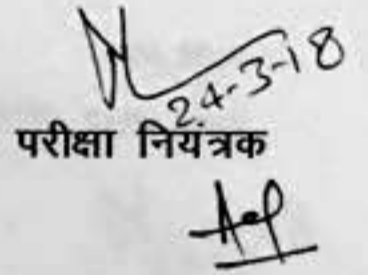 24-3-18
परीक्षा नियंत्रक